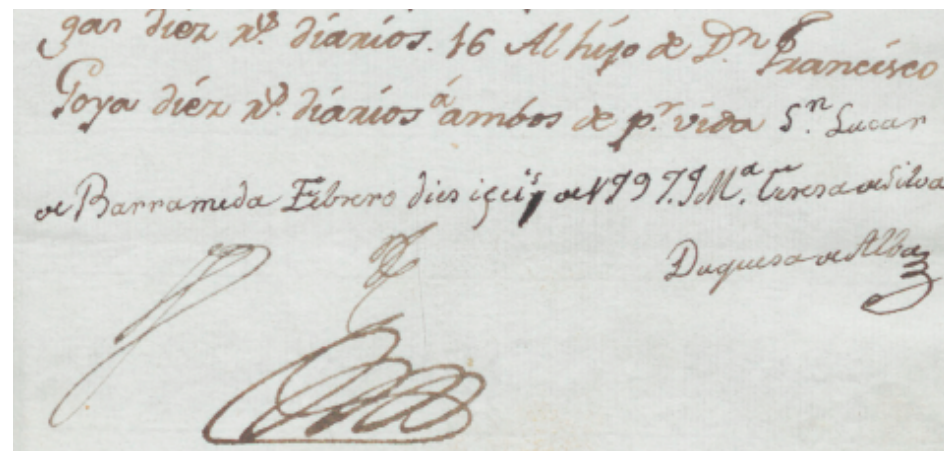 gan diez rs. diarios. 16 Al hijo de Dn. Francisco
Goya diez rs. diarios á ambos de pr. vida Sn. Lucar
de Barrameda Febrero dies iceis de 1797. Ma. Teresa de Silva
Duquesa de Alba